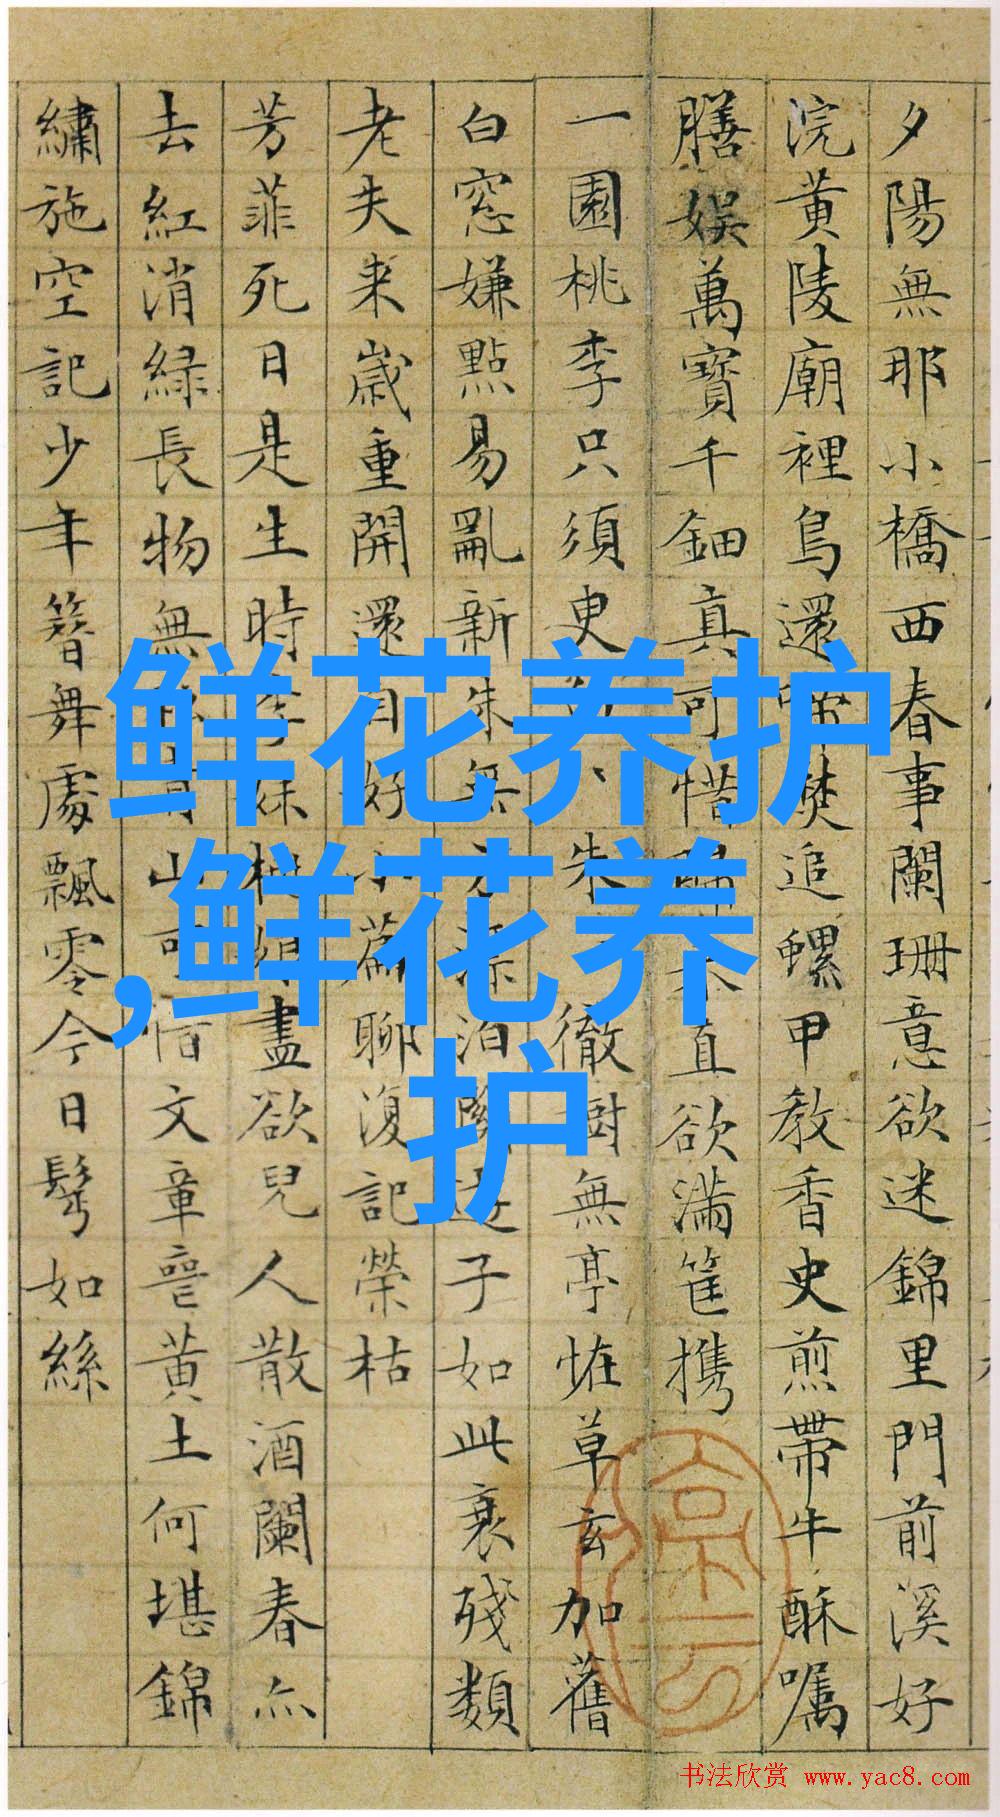 夕陽無那小橋西春事闌珊意欲迷錦里門前溪好
浣黄陵廟裡鳥還啼 追螺甲教香史煎帶牛酥嘱
膳娱萬寶千鈿真可惜 直欲滿筐携
一園桃李只須臾 朱 徹樹無亭恠草玄加舊
白窓嫌點易亂新朱無 泊 子如此衰殘類
老失来歳重開還自好小篇聊復記榮枯
芳菲死日是生時李妹桃娘盡欲兒人散酒闌春亦
去紅消緑長物無 山可惜文章 黄土何堪錦
繡施空記少年簪舞處飄零今日髩如絲
鲜花养护
,鲜花养
护
书法欣赏 www.yac8.com